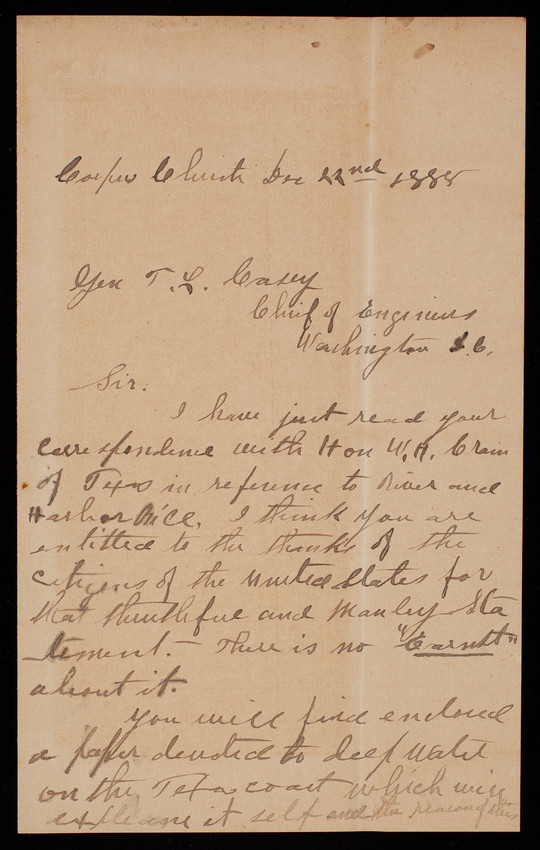 Corpus Christi Dec 22nd 1888
Gen T. L. Casey
Chief of Engineers
Washington D.C.
Sir:
I have just read your
correspondence with Hon W. H. Crain
of Texas in reference to River and
Harbor Bill. I think you are
entitled to the thanks of the
citizens of the United States for
that thruthful and manley Sta
tement. - There is no "Earnst"
about it.
You will find enclosed
a paper devoted to deep water
on the Texas coast which will
explane it self and the reason of this